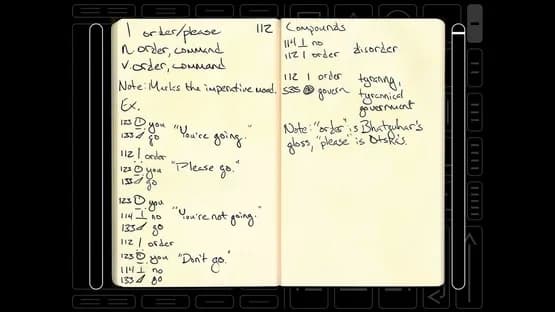 order/please 112
n. order, command
v. order, command
Note: Marks the imperative mood.
Ex.
123 you
133 go
"You're going."
112 order
123 you
133 go
"Please go."
123 you
114 no
133 go
"You're not going."
112 order
123 you
114 no
133 go
"Don't go."
Compounds
114 no
112 order
disorder
112 order
535 govern
tyranny,
tyrannical
government
Note: "order" is
gloss, "please" is